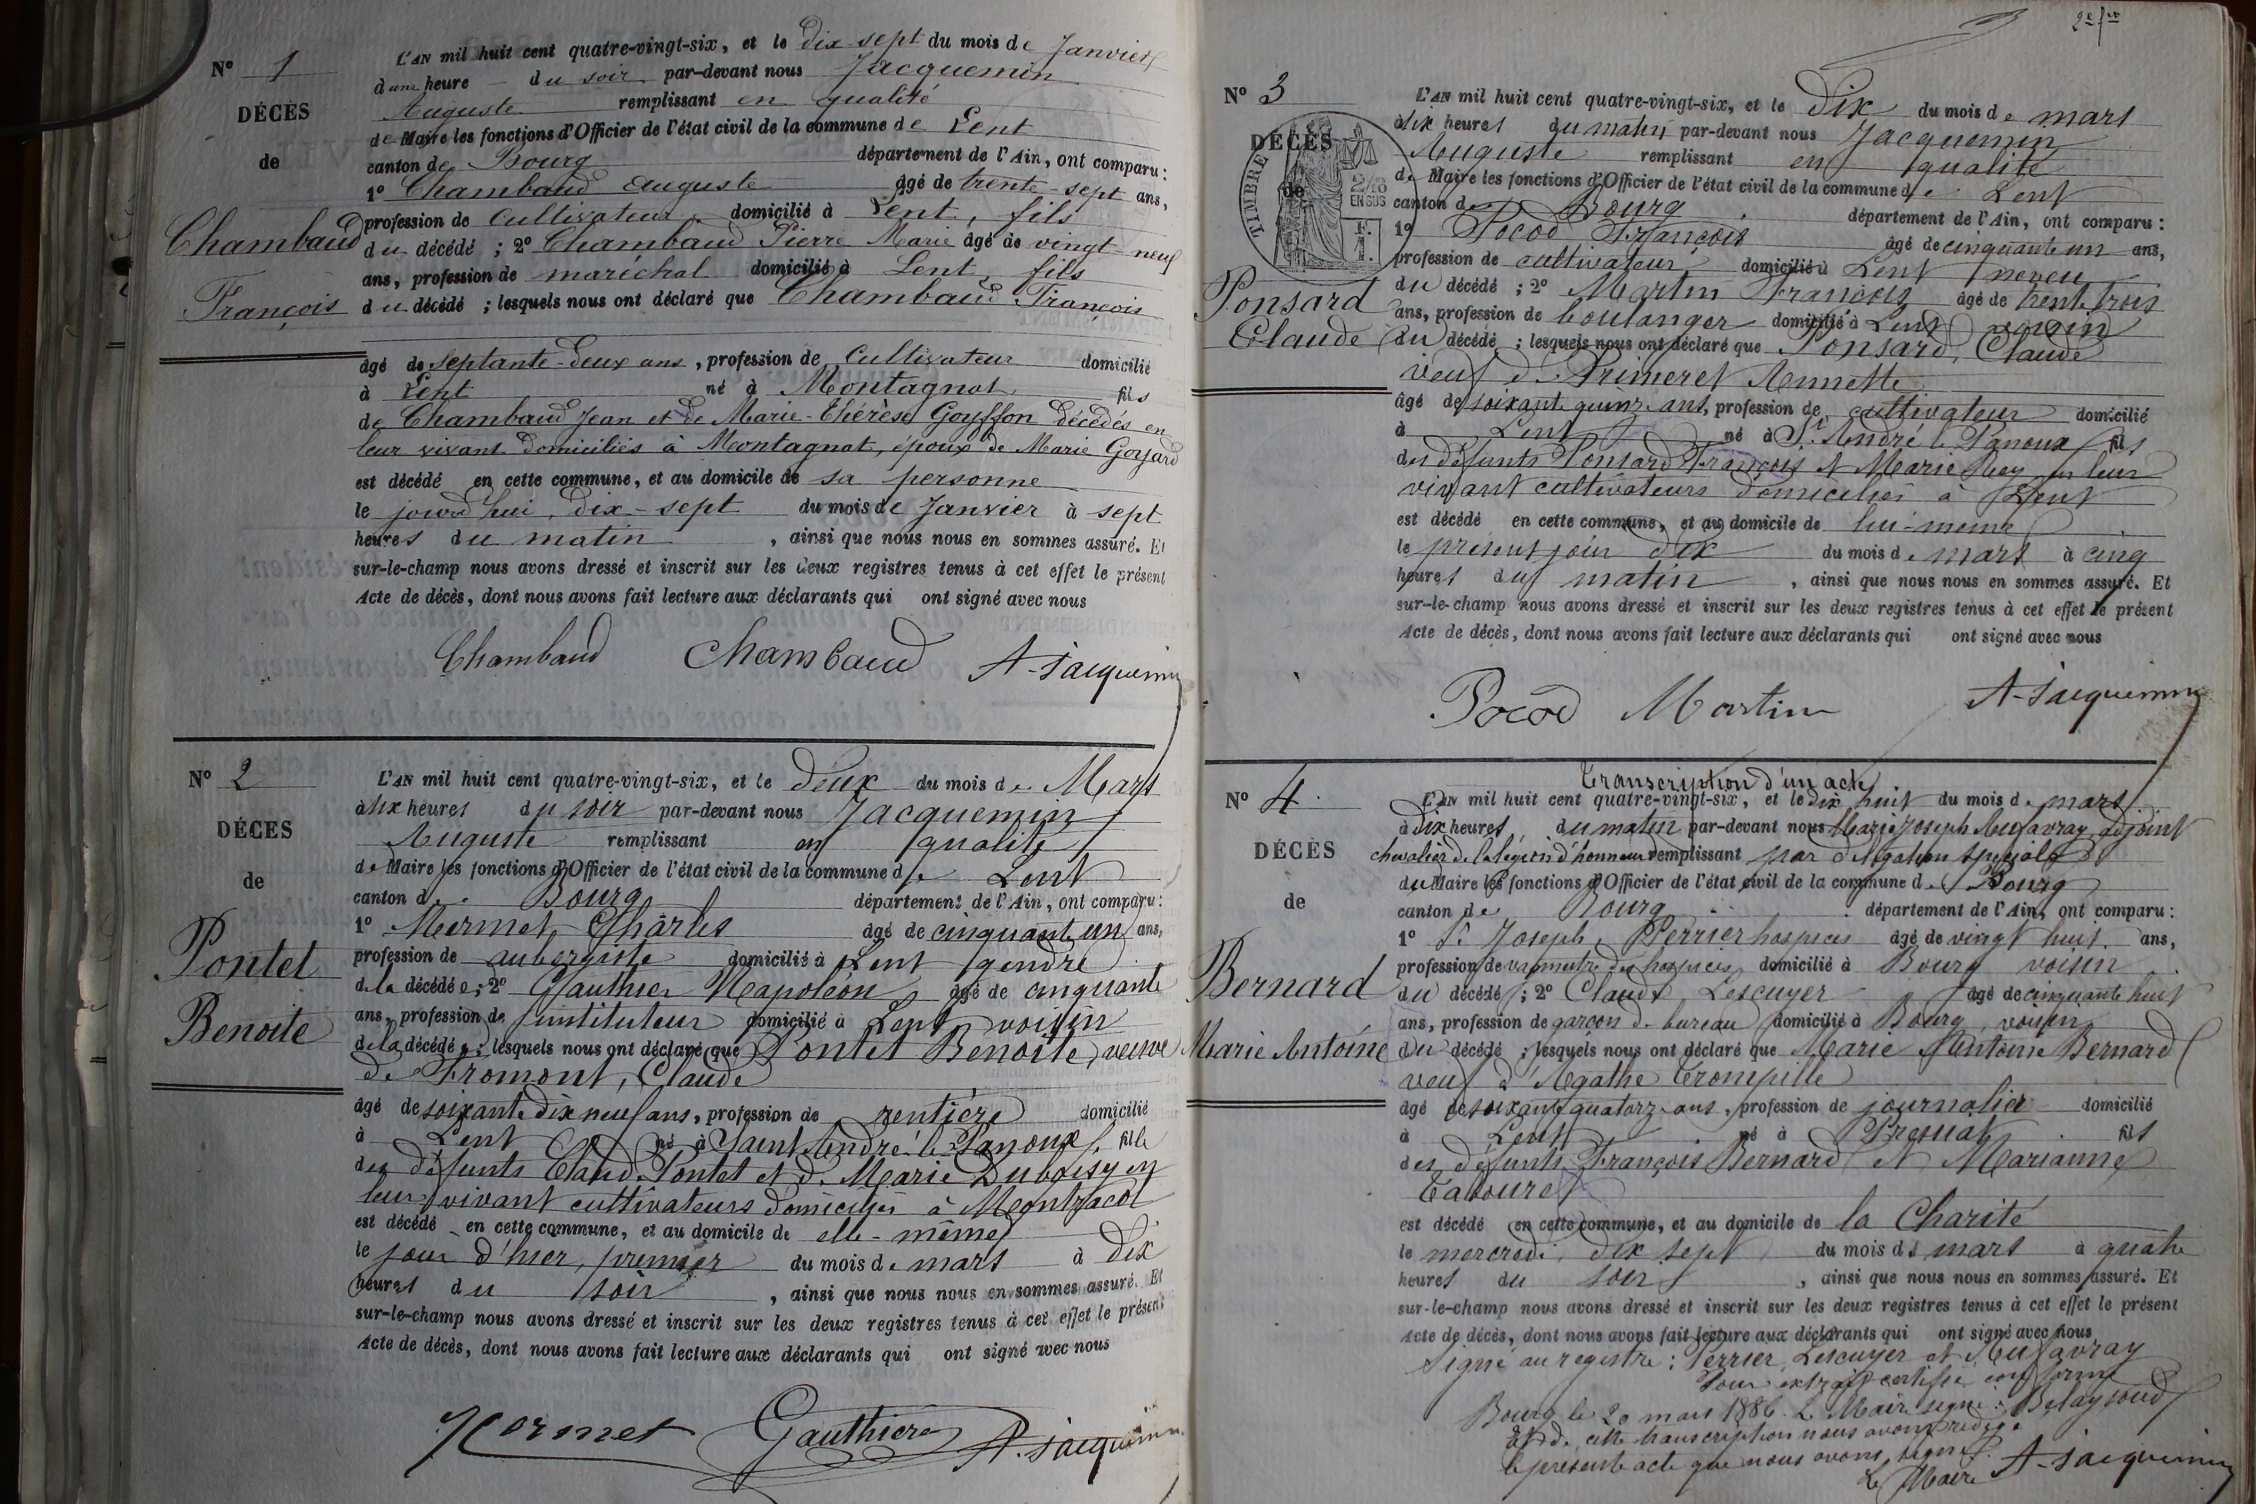 N° 1
DÉCÈS
de
Chambaud
François
L'AN mil huit cent quatre-vingt-six, et le dix-sept du mois de Janvier
à une heure du soir par-devant nous Jacquemin
Auguste remplissant en qualité
de Maire les fonctions d'Officier de l'état civil de la commune de Lent
canton de Bourg département de l'Ain, ont comparu :
1° Chambaud Auguste âgé de trente-sept ans,
profession de cultivateur domicilié à Lent, fils
du décédé ; 2° Chambaud Pierre Marie âgé de vingt-neuf
ans, profession de maréchal domicilié à Lent, fils
du décédé ; lesquels nous ont déclaré que Chambaud François
âgé de septante-deux ans, profession de cultivateur domicilié
à Lent né à Montagnat fils
de Chambaud Jean et de Marie-Thérèse Goyffon décédés en
leur vivant domiciliés à Montagnat, époux de Marie Goyard
est décédé en cette commune, et au domicile de sa personne
le jourd'hui, dix-sept du mois de Janvier à sept
heures du matin, ainsi que nous nous en sommes assuré. Et
sur-le-champ nous avons dressé et inscrit sur les deux registres tenus à cet effet le présent
Acte de décès, dont nous avons fait lecture aux déclarants qui ont signé avec nous
Chambaud Chambaud A. Jacquemin
N° 2
DÉCES
de
Pontet
Benoite
L'AN mil huit cent quatre-vingt-six, et le deux du mois de Mars
à six heures du soir par-devant nous Jacquemin
Auguste remplissant en qualité
de Maire les fonctions d'Officier de l'état civil de la commune de Lent
canton de Bourg département de l'Ain, ont comparu :
1° Mermet Charles âgé de cinquante un ans,
profession de aubergiste domicilié à Lent gendre
de la décédée ; 2° Gauthier Napoléon âgé de cinquante
ans, profession de instituteur domicilié à Lent voisin
de la décédée ; lesquels nous ont déclaré que Pontet Benoite, veuve
de Fromont, Claude
âgé de soixante dix neuf ans, profession de rentière domicilié
à Lent né à Saint André le Panoux, fille
des défunts Claude Pontet et de Marie Duboisy en
leur vivant cultivateurs domiciliés à Montracol
est décédé en cette commune, et au domicile de elle-même
le jour d'hier, premier du mois de mars à dix
heures du soir, ainsi que nous nous en sommes assuré. Et
sur-le-champ nous avons dressé et inscrit sur les deux registres tenus à cet effet le présent
Acte de décès, dont nous avons fait lecture aux déclarants qui ont signé avec nous
Mermet Gauthier A. Jacquemin
N° 3
DÉCÈS
de
TIMBRE
2/10
EN SUS
F.
1.
Ponsard
Claude
L'AN mil huit cent quatre-vingt-six, et le dix du mois de mars
à six heures du matin par-devant nous Jacquemin
Auguste remplissant en qualité
de Maire les fonctions d'Officier de l'état civil de la commune de Lent
canton de Bourg département de l'Ain, ont comparu :
1° Pocod François âgé de cinquante un ans,
profession de cultivateur domicilié à Lent neveu
du décédé ; 2° Martin François âgé de trente trois
ans, profession de boulanger domicilié à Lent voisin
du décédé ; lesquels nous ont déclaré que Ponsard, Claude
veuf de Primeret Annette
âgé de soixante quinze ans, profession de cultivateur domicilié
à Lent né à St André le Panoux fils
des défunts Ponsard François et Marie Rey en leur
vivant cultivateurs domiciliés à Lent
est décédé en cette commune, et au domicile de lui-même
le présent jour dix du mois de mars à cinq
heures du matin, ainsi que nous nous en sommes assuré. Et
sur-le-champ nous avons dressé et inscrit sur les deux registres tenus à cet effet le présent
Acte de décès, dont nous avons fait lecture aux déclarants qui ont signé avec nous
Pocod Martin A. Jacquemin
N° 4
DÉCÈS
de
Bernard
Marie Antoine
Transcription d'un acte
L'AN mil huit cent quatre-vingt-six, et le dix huit du mois de mars
à dix heures du matin par-devant nous Marie Joseph adjoint
chevalier de la légion d'honneur remplissant par délégation spéciale
du Maire les fonctions d'Officier de l'état civil de la commune de Bourg
canton de Bourg département de l'Ain, ont comparu :
1° Joseph Perrier âgé de vingt huit ans,
profession de des hospices domicilié à Bourg voisin
du décédé ; 2° Claude Lescuyer âgé de cinquante huit
ans, profession de garçon de bureau domicilié à Bourg, voisin
du décédé ; lesquels nous ont déclaré que Marie Antoine Bernard
veuf d'Agathe Trompille
âgé de soixante quatorze ans, profession de journalier domicilié
à Lent né à Druillat fils
des défunts François Bernard et Marianne
Tabouret
est décédé en cette commune, et au domicile de la Charité
le mercredi, dix sept du mois de mars à quatre
heures du soir, ainsi que nous nous en sommes assuré. Et
sur-le-champ nous avons dressé et inscrit sur les deux registres tenus à cet effet le présent
Acte de décès, dont nous avons fait lecture aux déclarants qui ont signé avec nous
Signé au registre : Perrier, Lescuyer et
Pour extrait certifié conforme
Bourg le 20 mars 1886. Le Maire signé :
Et de cette transcription nous avons rédigé
le présent acte que nous avons signé.
Le Maire A. Jacquemin